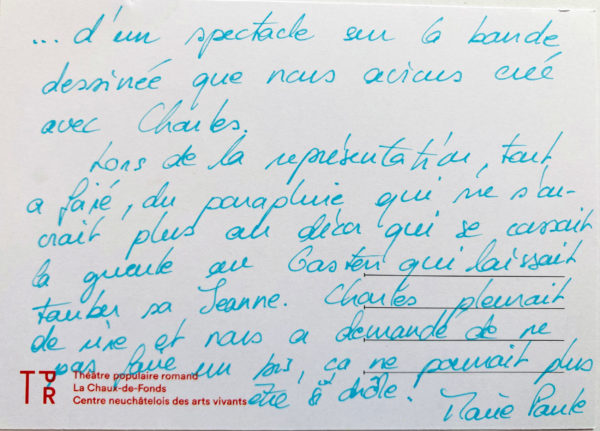 ... d'un spectacle sur la bande
dessinée que nous avions créé
avec Charles.
Lors de la représentation, tout
a foiré, du parapluie qui ne s'ou-
vrait plus au décor qui se cassait
la gueule au Gaston qui laissait
tomber sa Jeanne. Charles pleurait
de rire et nous a demandé de ne
pas faire un bis, ça ne pourrait plus
être si drôle. Marie Paule
TPR
Théâtre populaire romand
La Chaux-de-Fonds
Centre neuchâtelois des arts vivants